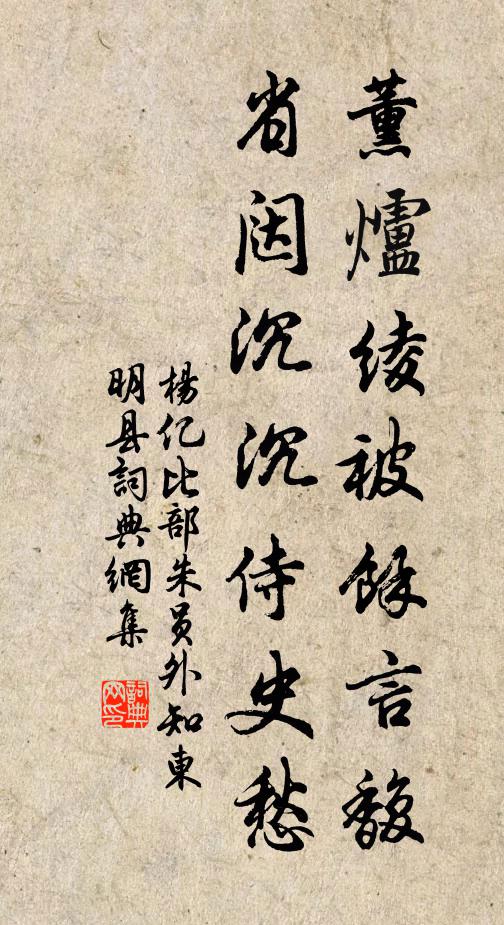 薰爐綾被餘言馥
省闼沉沉侍史愁
楊亿比部朱員外知東
明县詞典網集
詞典网印